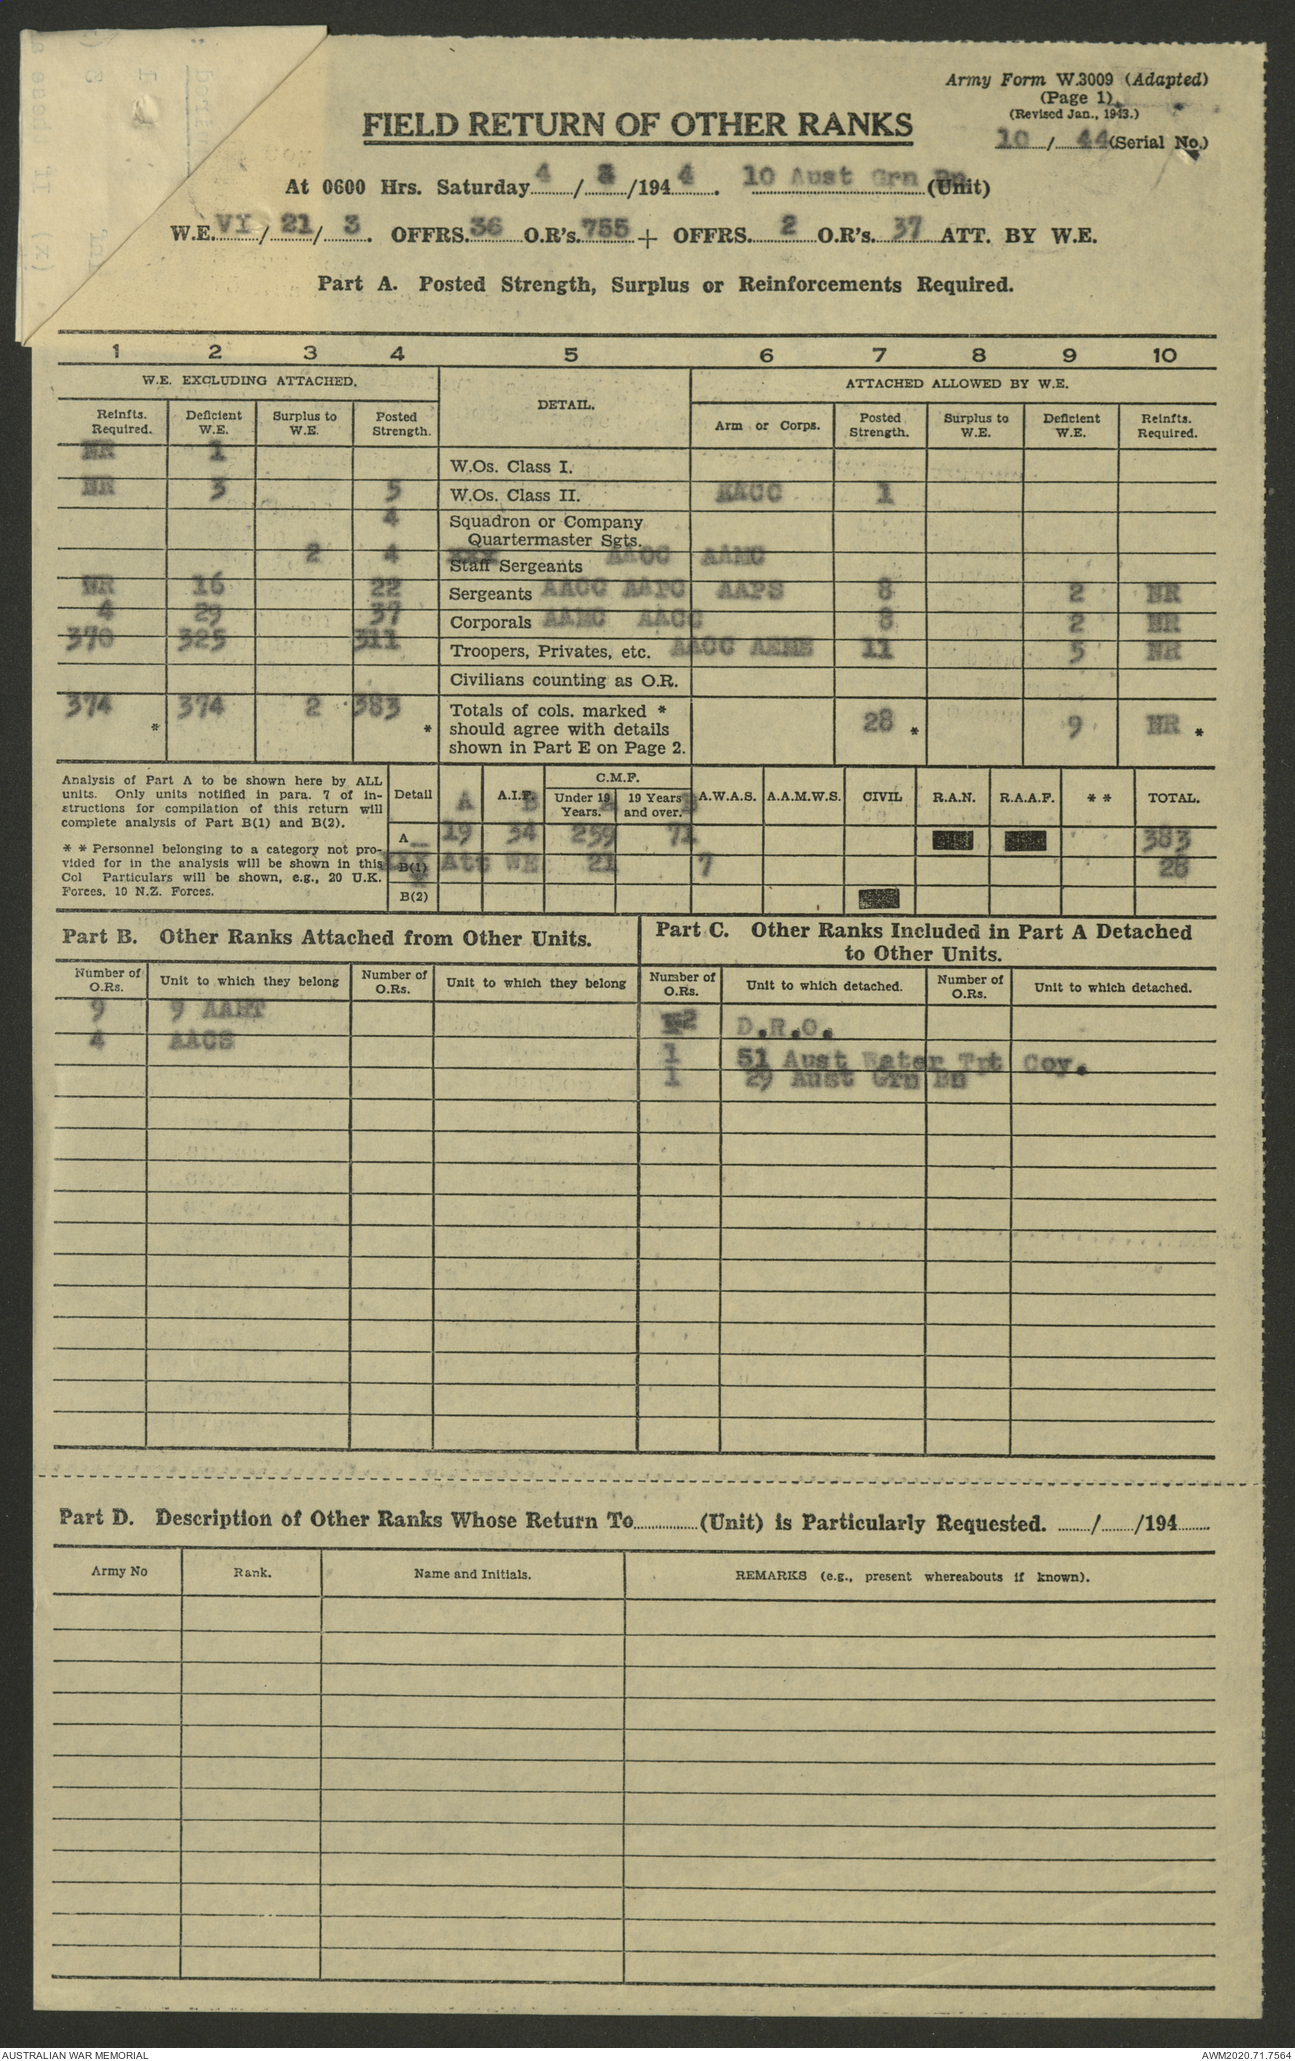 Army Form W.3009 (Adapted)
(Page 1)
(Revised Jan., 1943.)
10 / 44 (Serial No.)
FIELD RETURN OF OTHER RANKS
At 0600 Hrs. Saturday 4 / 3 /194 4 . 10 Aust Grn Bn (Unit)
W.E. VI / 21 / 3 . OFFRS. 36 O.R's. 755 + OFFRS. 2 O.R's. 37 ATT. BY W.E.
Part A. Posted Strength, Surplus or Reinforcements Required.
1 2 3 4 5 6 7 8 9 10
W.E. EXCLUDING ATTACHED. DETAIL. ATTACHED ALLOWED BY W.E.
Reinfts. Required. Deficient W.E. Surplus to W.E. Posted Strength. Arm or Corps. Posted Strength. Surplus to W.E. Deficient W.E. Reinfts. Required.
NR 1 W.Os. Class I.
NR 3 5 W.Os. Class II. AACC 1
4 Squadron or Company Quartermaster Sgts.
2 4 xxx Staff Sergeants AAOC AAMC
NR 16 22 Sergeants AACC AAPC AAPS 8 2 NR
4 29 37 Corporals AAMC AACC 8 2 NR
370 325 311 Troopers, Privates, etc. AACC AEME 11 5 NR
Civilians counting as O.R.
374 * 374 2 383 * Totals of cols. marked * should agree with details shown in Part E on Page 2. 28 * 9 NR *
Analysis of Part A to be shown here by ALL
units. Only units notified in para. 7 of in-
structions for compilation of this return will
complete analysis of Part B(1) and B(2).
* * Personnel belonging to a category not pro-
vided for in the analysis will be shown in this
Col Particulars will be shown, e.g., 20 U.K.
Forces, 10 N.Z. Forces.
C.M.F.
Detail A A.I.F. B Under 19 Years. A 19 Years and over. B A.W.A.S. A.A.M.W.S. CIVIL R.A.N. R.A.A.F. * * TOTAL.
A 19 34 259 71 383
B(1) Att WE 21 7 28
B(2)
Part B. Other Ranks Attached from Other Units.
Number of O.Rs. Unit to which they belong Number of O.Rs. Unit to which they belong
9 9 AAMT
4 AACS
Part C. Other Ranks Included in Part A Detached
to Other Units.
Number of O.Rs. Unit to which detached. Number of O.Rs. Unit to which detached.
2 D.R.O.
1 51 Aust Water Tpt Coy.
1 29 Aust Grn Bn
Part D. Description of Other Ranks Whose Return To (Unit) is Particularly Requested. / /194
Army No Rank. Name and Initials. REMARKS (e.g., present whereabouts if known).
AUSTRALIAN WAR MEMORIAL AWM2020.71.7564